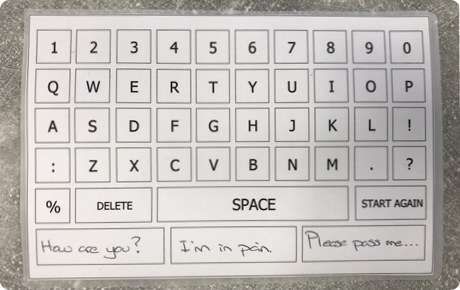 1 2 3 4 5 6 7 8 9 0
Q W E R T Y U I O P
A S D F G H J K L !
: Z X C V B N M . ?
% DELETE SPACE START AGAIN
How are you? I'm in pain. Please pass me...